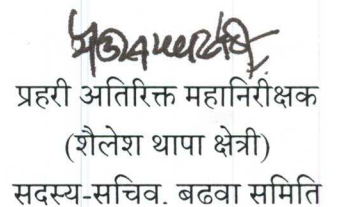 प्रहरी अतिरिक्त महानिरीक्षक
(शैलेश थापा क्षेत्री)
सदस्य-सचिव. बढवा समिति